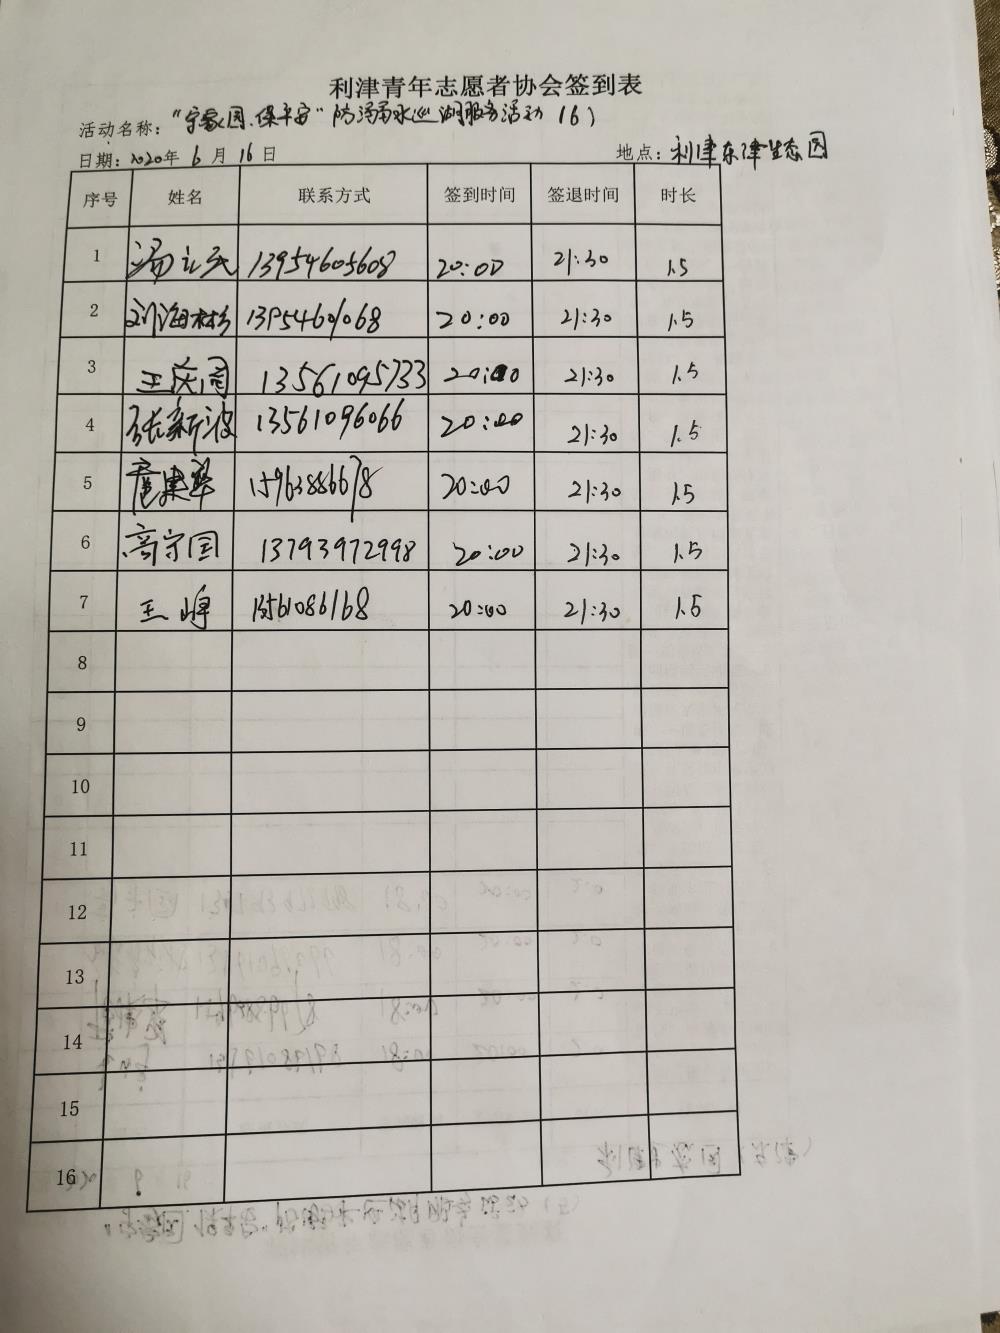 利津青年志愿者协会签到表
活动名称："守家园、保平安"防溺水巡湖服务活动（6）
日期：2020年6月16日 地点：利津东津生态园
序号 姓名 联系方式 签到时间 签退时间 时长
1 汤立民 13954605608 20:00 21:30 1.5
2 刘海彬 13954601068 20:00 21:30 1.5
3 王庆国 13561095733 20:00 21:30 1.5
4 张新波 13561096066 20:00 21:30 1.5
5 15963886678 20:00 21:30 1.5
6 高守国 13793972998 20:00 21:30 1.5
7 王峰 13561086168 20:00 21:30 1.5
8
9
10
11
12
13
14
15
16